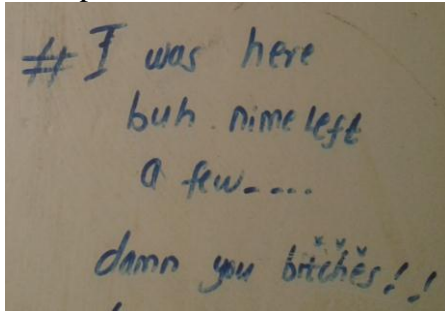 # I was here
buh nime left
a few.....
damn you bitches!!